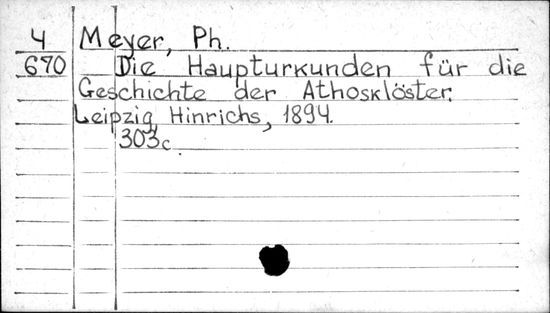 4 Meyer, Ph.
670 Die Haupturkunden für die
Geschichte der Athosklöster.
Leipzig, Hinrichs, 1894.
303c.